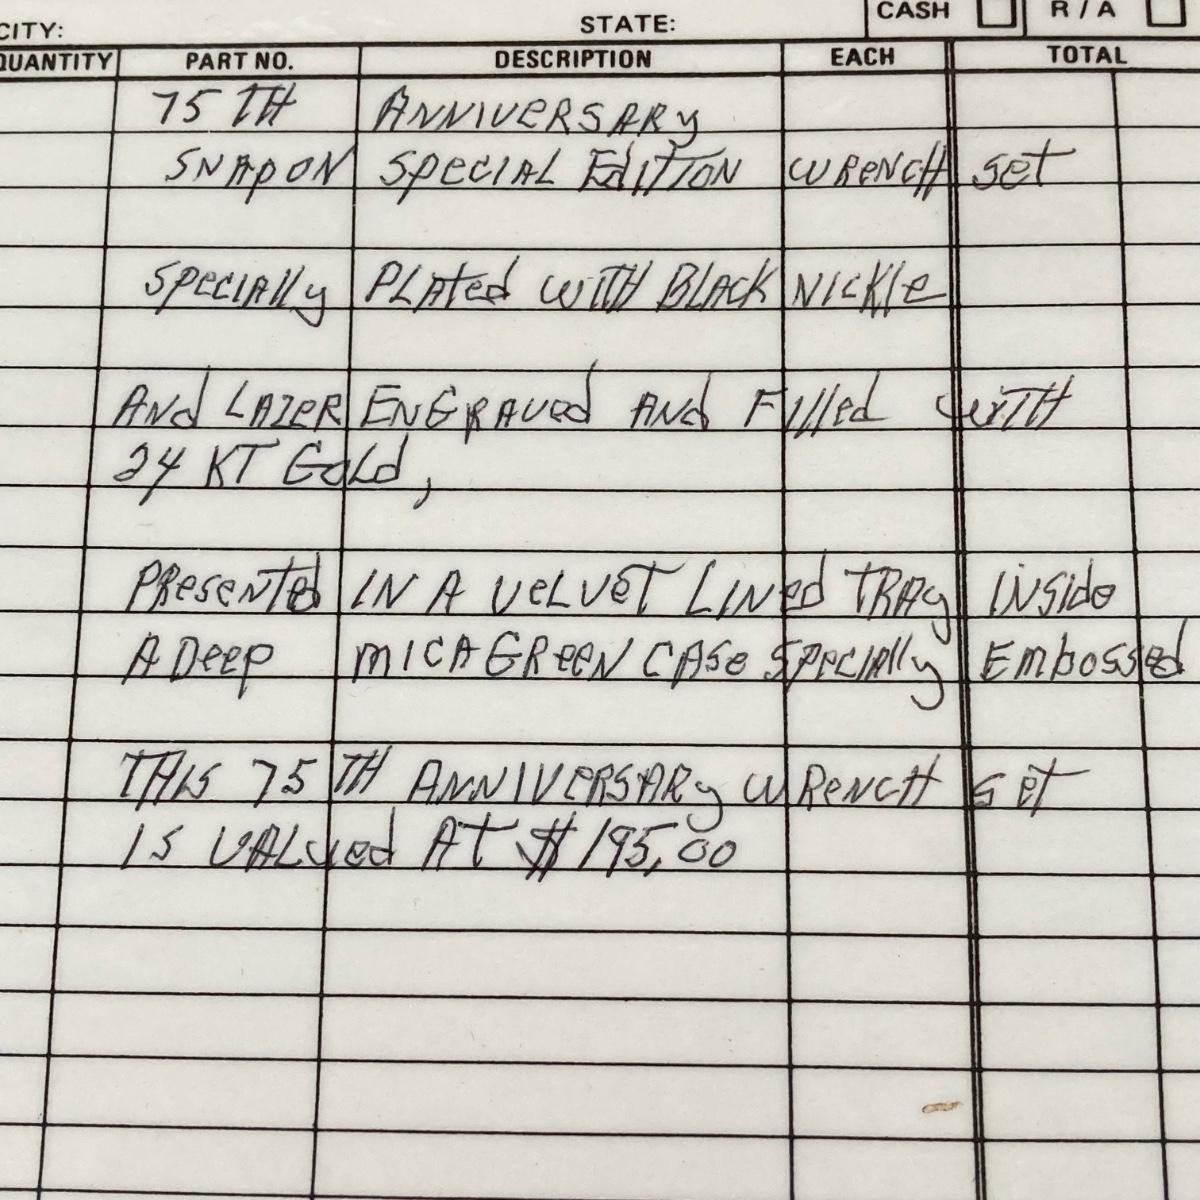 CASH R/A
CITY: STATE:
QUANTITY PART NO. DESCRIPTION EACH TOTAL
75 TH ANNIVERSARY
SNAPON SPECIAL EdITION WRENCH set
SPECIAlly PLAted WITH BLACK NICKle
ANd LAZER ENGRAVed ANd FIlled WITH
24 KT Gold,
PResented IN A VELVET LINed TRAy INSide
A Deep MICA GReeN CASe SPECIAlly Embossed
THIS 75 TH ANNIVERSARy WRENCH set
IS VALued AT $195,00